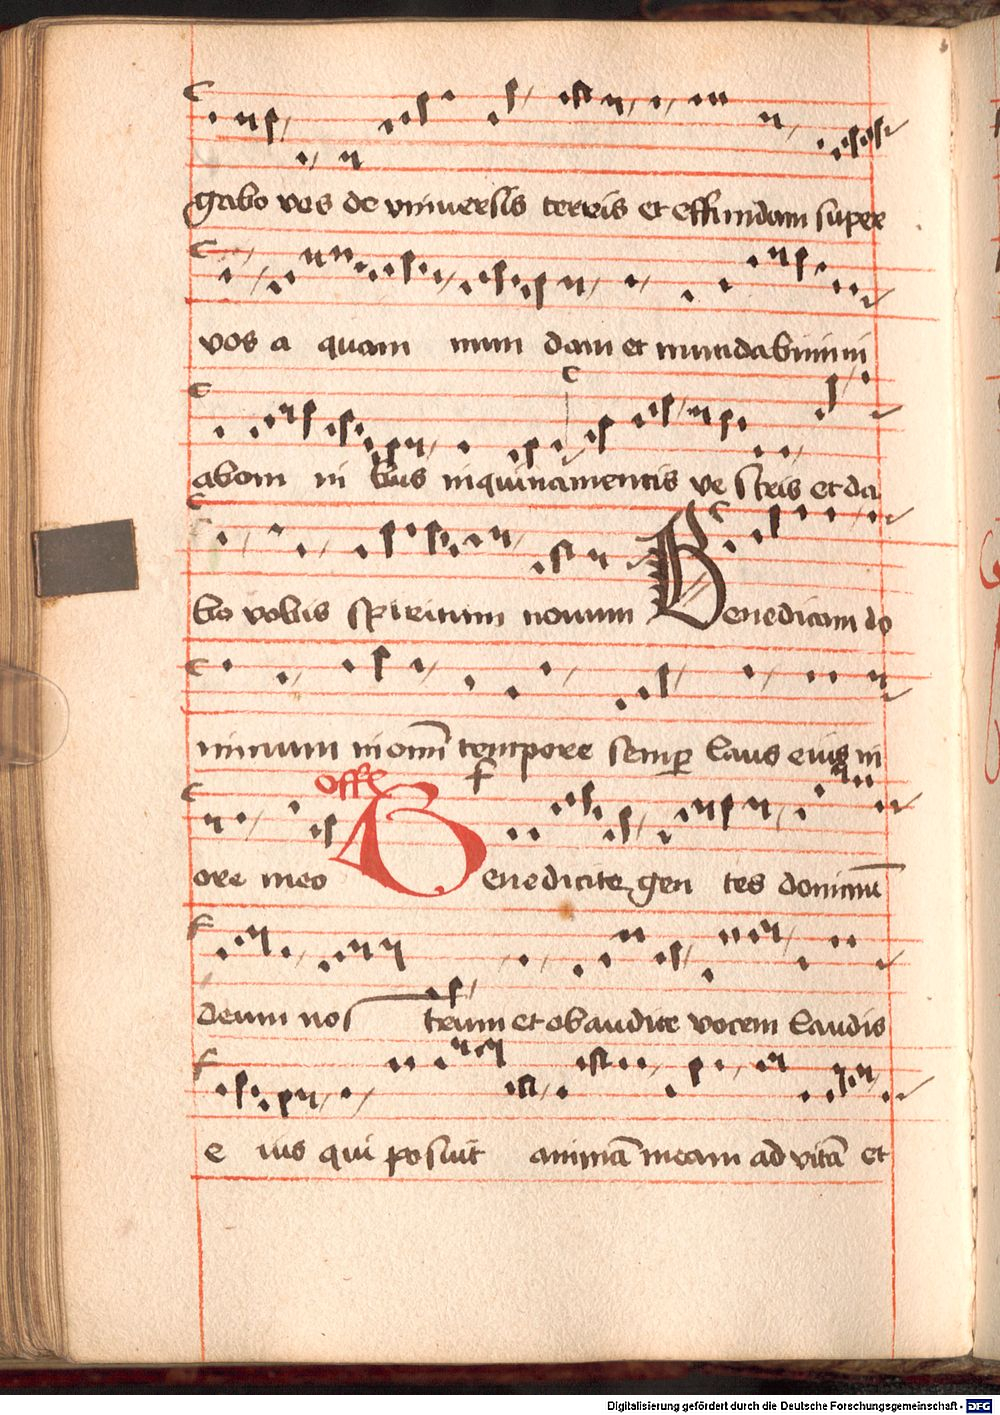 gabo vos de vniuersis terris et effundam super
vos a quam mun dam et mundabimini
abom in bus inquinamentis ve stris et da
bo vobis spiritum nouum Benedicam do
minum in omni tempore semper laus eius in
Offe
ore meo Benedicite gen tes dominum
deum nos trum et obaudite vocem laudis
e ius qui posuit animā meam ad vitā et
Digitalisierung gefördert durch die Deutsche Forschungsgemeinschaft - DFG